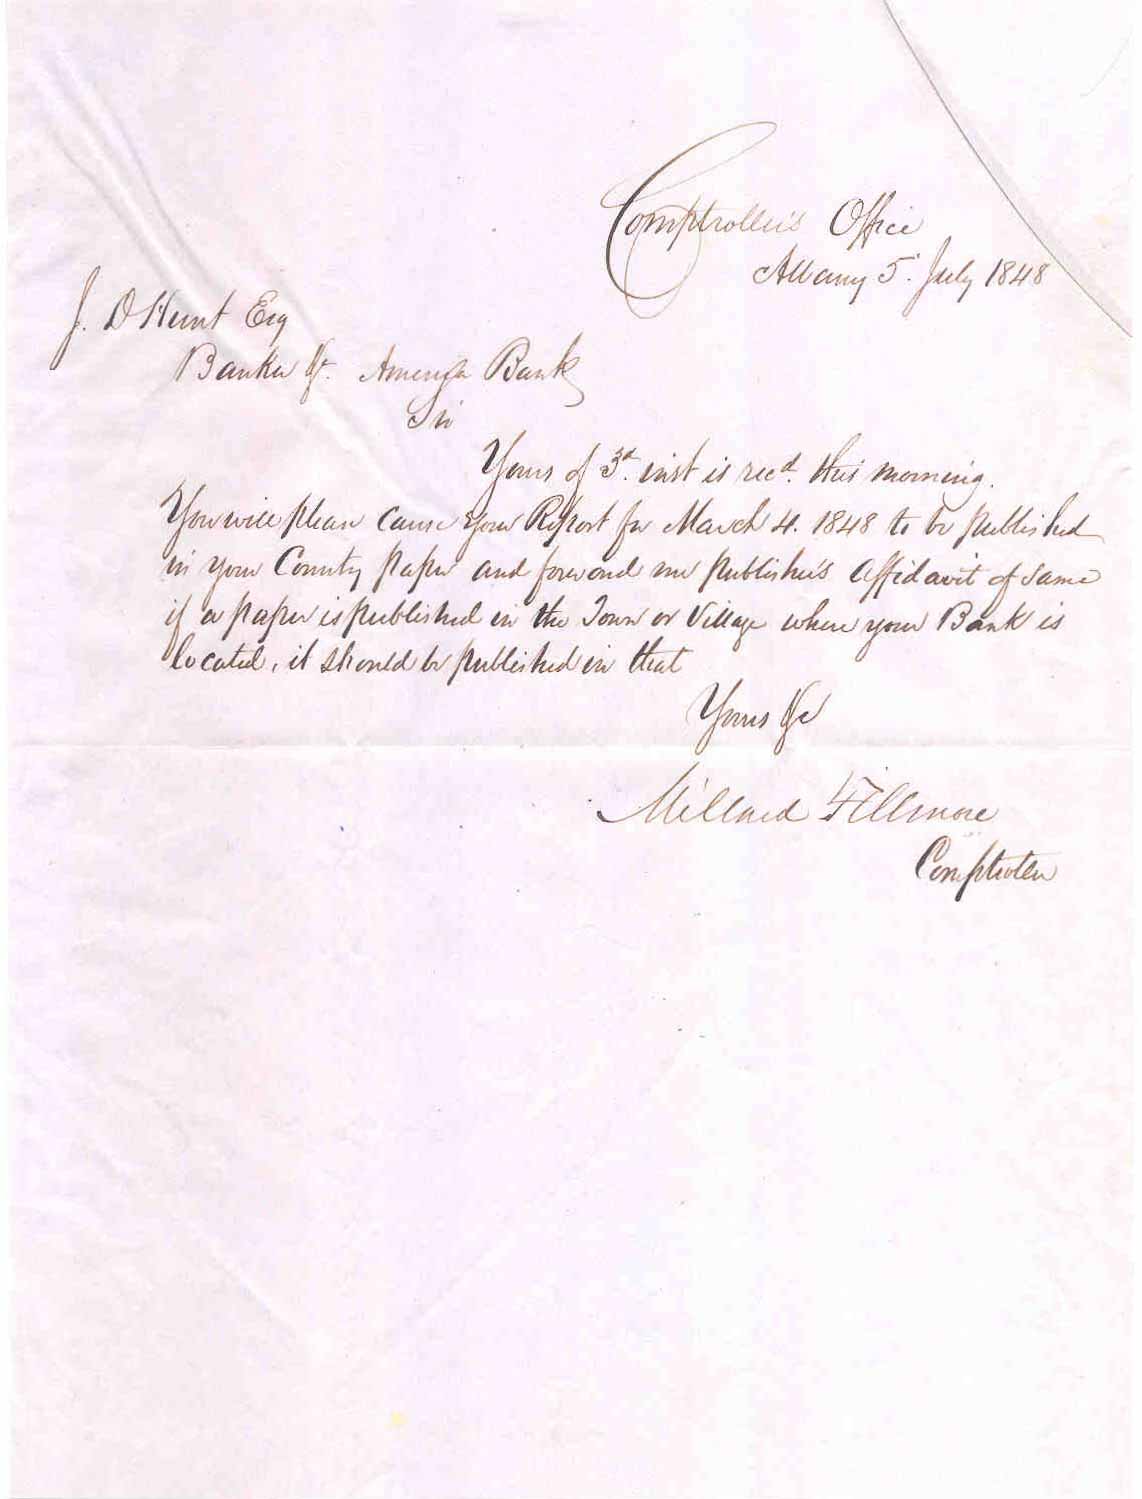 Comptroller's Office
Albany 5. July 1848
J. D Hunt Esq
Banker &c. America Bank
Sir
Yours of 3d. inst is recd. this morning.
You will please cause your Report for March 4. 1848 to be published
in your County paper and forward me publisher's affidavit of same
if a paper is published in the Town or Village where your Bank is
located, it should be published in that
Yours &c
Millard Fillmore
Comptroller